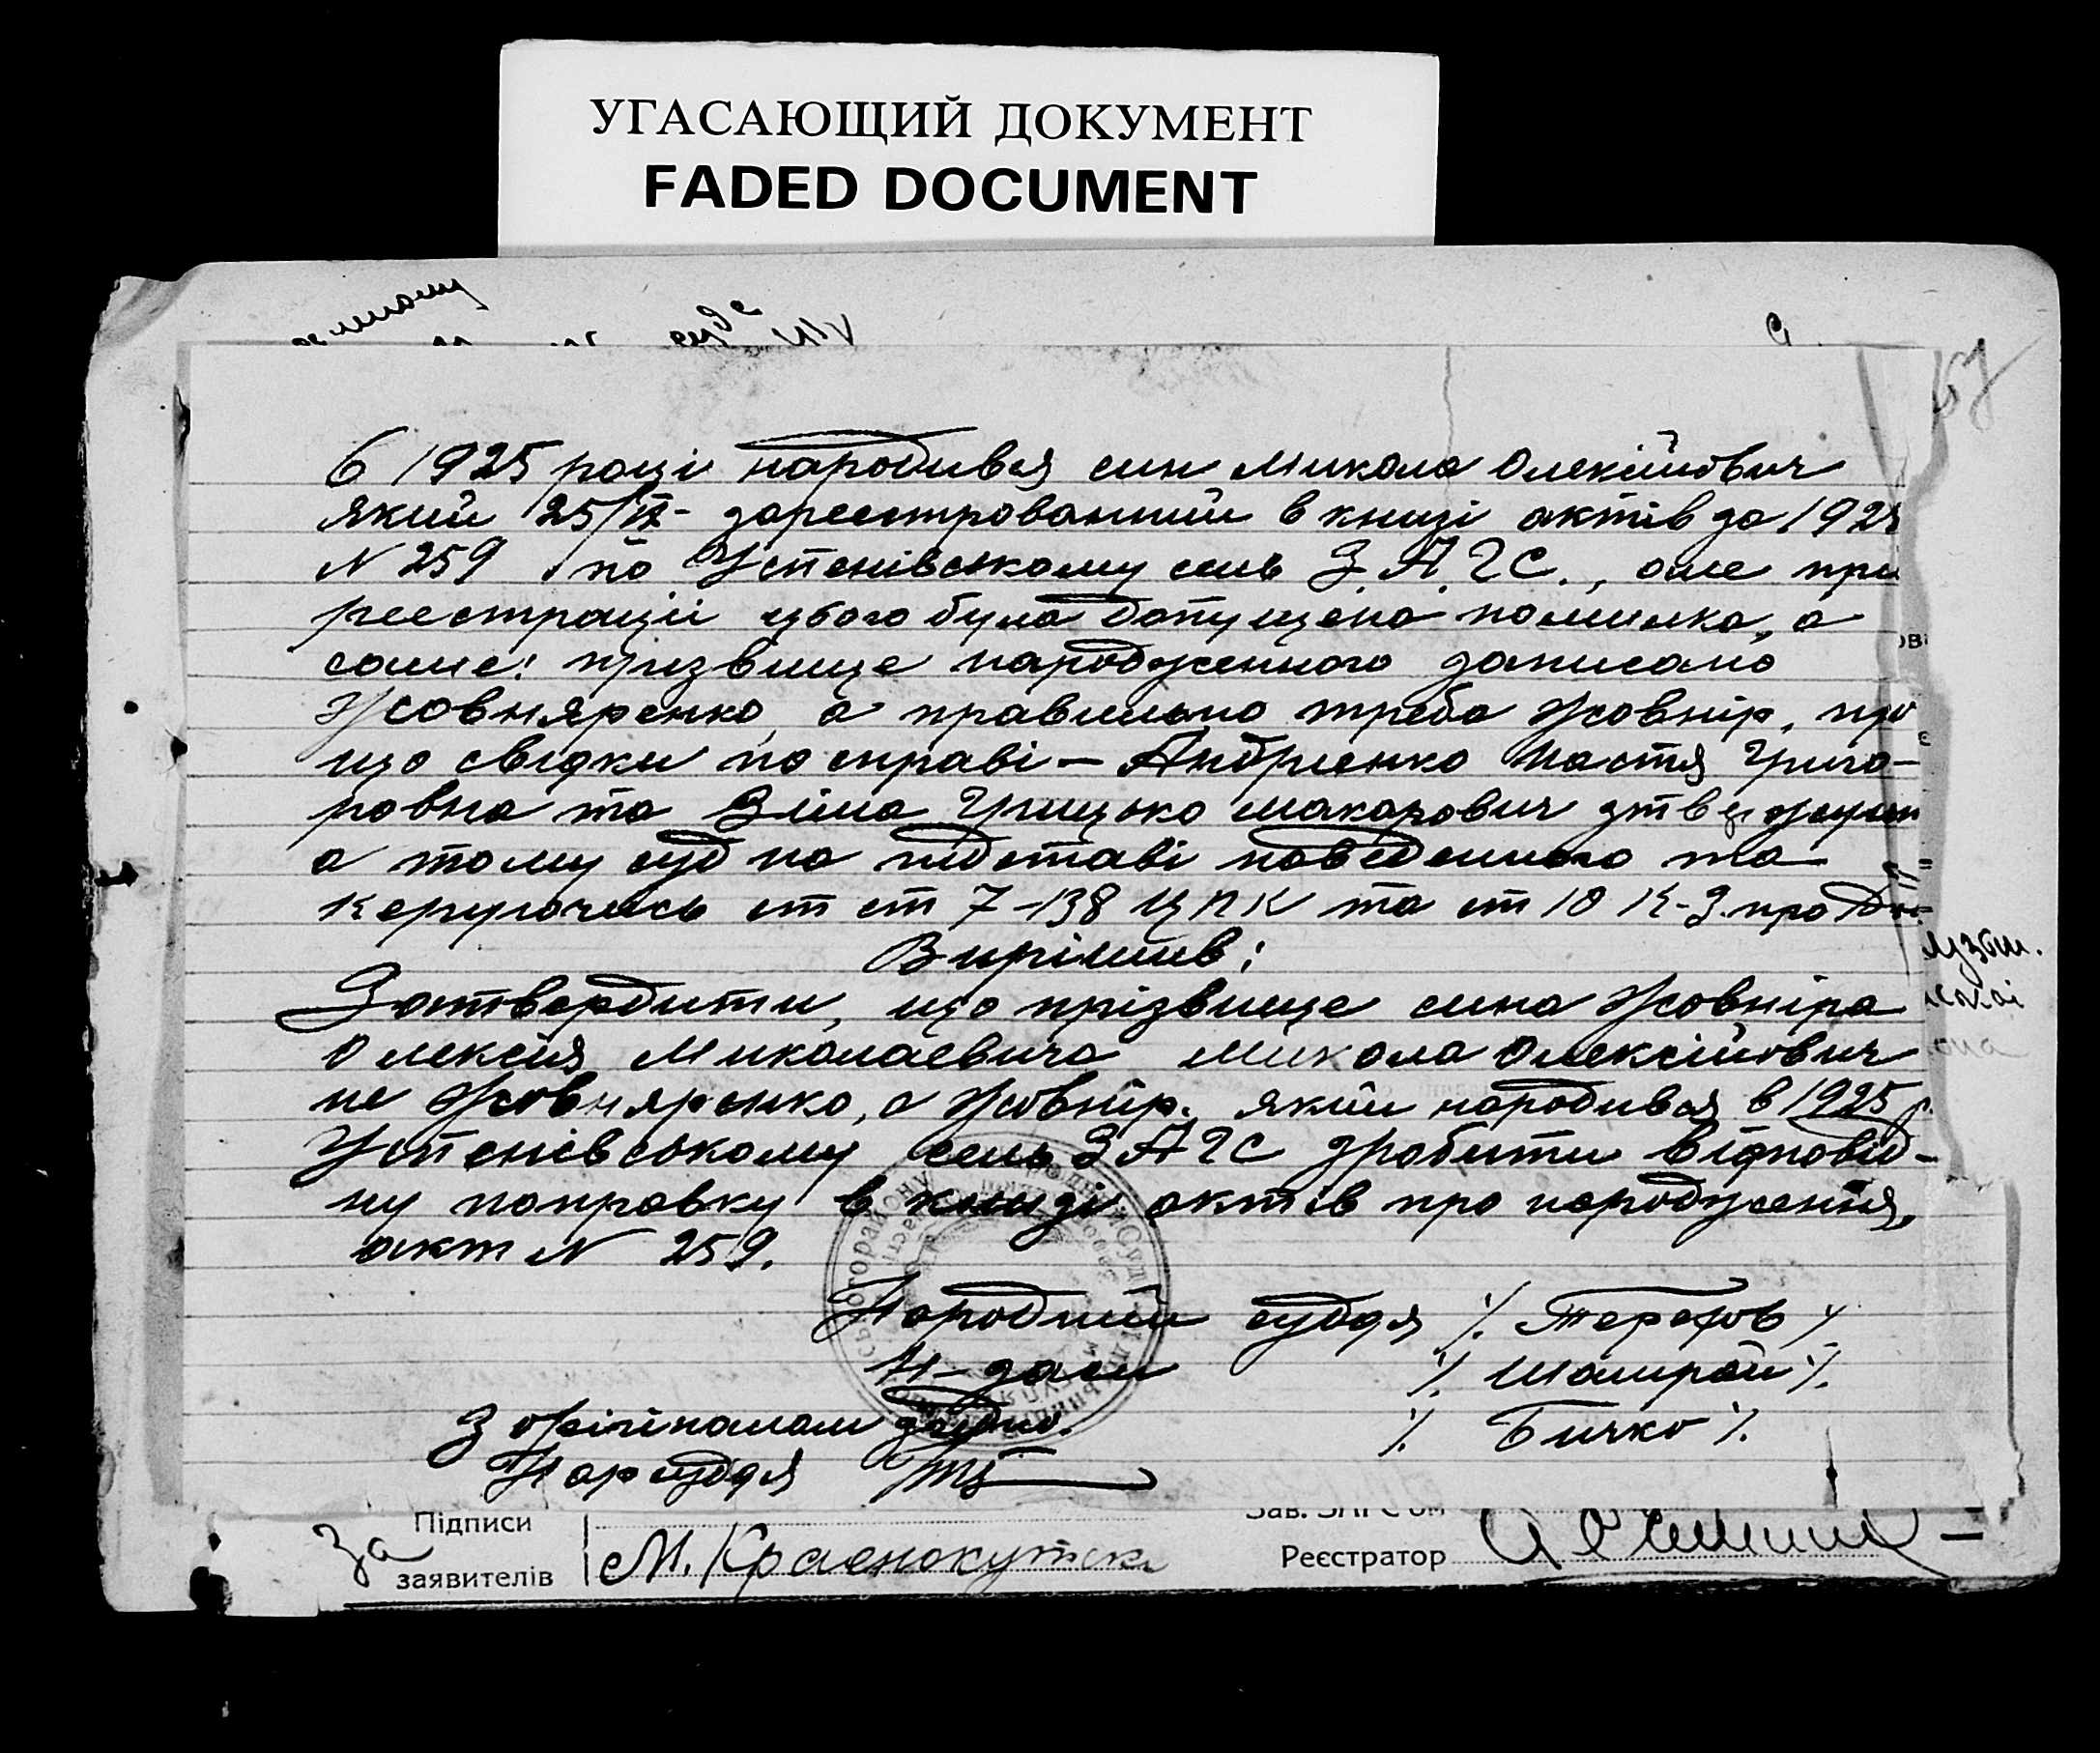 УГАСАЮЩИЙ ДОКУМЕНТ
FADED DOCUMENT
в 1925 році народився син Микола Олексійович
який 25/ зареестрований в книзі актів за 192
N 259 по Успенівському сель З.А.ГС., але при
реестрації цього була допущена помилка, а
саме: прізвище народженного записано
Жовняренко, а правильно треба Жовнір, про
що свідки по справі – Андрієнко Настя Григо-
ровна та Зіма Грицько Макарович
а тому суд на підставі наведенного та
керуючись ст ст 7-138 ЦПК та ст 10 К-З. про
Вирішив:
Затвердити, що прізвище сина Жовніра
Олексія Миколаєвича Микола Олексійович
не Жовняренко, а Жовнір. який народився в 1925 р.
Успенівському сель ЗАГС зробити відповід-
ну поправку в книзі актів про народження,
акт N 259.
Народний суддя /. Терехов /.
Н-засі /. Шамрай /.
/. Бичко /.
З орігіналом згідно.
Нарсуддя
За Підписи
заявителів
М. Краснокутск
Реєстратор